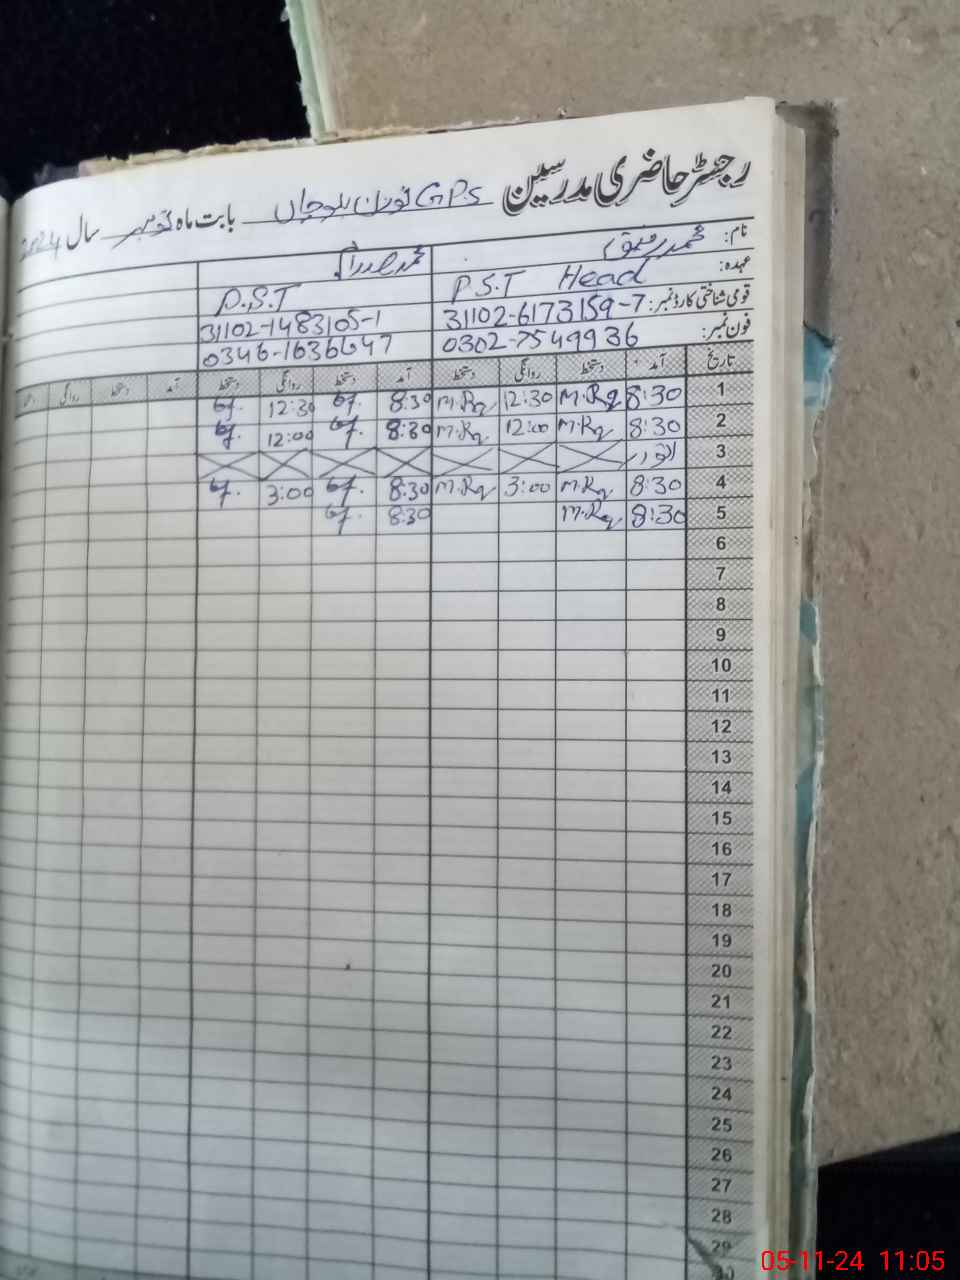 رجسٹر حاضری مدرسین GPS نورن بلوچاں بابت ماہ نومبر سال 2024
نام: محمد رفیق محمد
عہدہ: P.S.T Head P.S.T
قومی شناختی کارڈ نمبر: 31102-6173159-7 31102-1483105-1
فون نمبر: 0302-7549936 0346-1636647
تاریخ آمد دستخط روانگی دستخط آمد دستخط روانگی دستخط آمد دستخط روانگی
1 8:30 M.Rq 12:30 M.Rq 8:30 12:30
2 8:30 M.Rq 12:00 M.Rq 8:30 12:00
3 اتوار
4 8:30 M.Rq 3:00 M.Rq 8:30 3:00
5 8:30 M.Rq 8:30
6
7
8
9
10
11
12
13
14
15
16
17
18
19
20
21
22
23
24
25
26
27
28
29
30
05-11-24 11:05